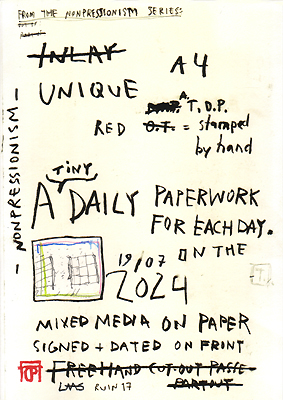 FROM THE NONPRESSIONISM SERIES:
INLAY
A4
UNIQUE
A. T.O.P.
RED O.T. = stamped
by hand
- NONPRESSIONISM -
TiNY
A DAILY PAPERWORK
FOR EACH DAY.
ON THE
19/07
2024
MIXED MEDIA ON PAPER
SIGNED + DATED ON FRONT
FREEHAND CUT-OUT PASSE-
PARTOUT
RUIN 17